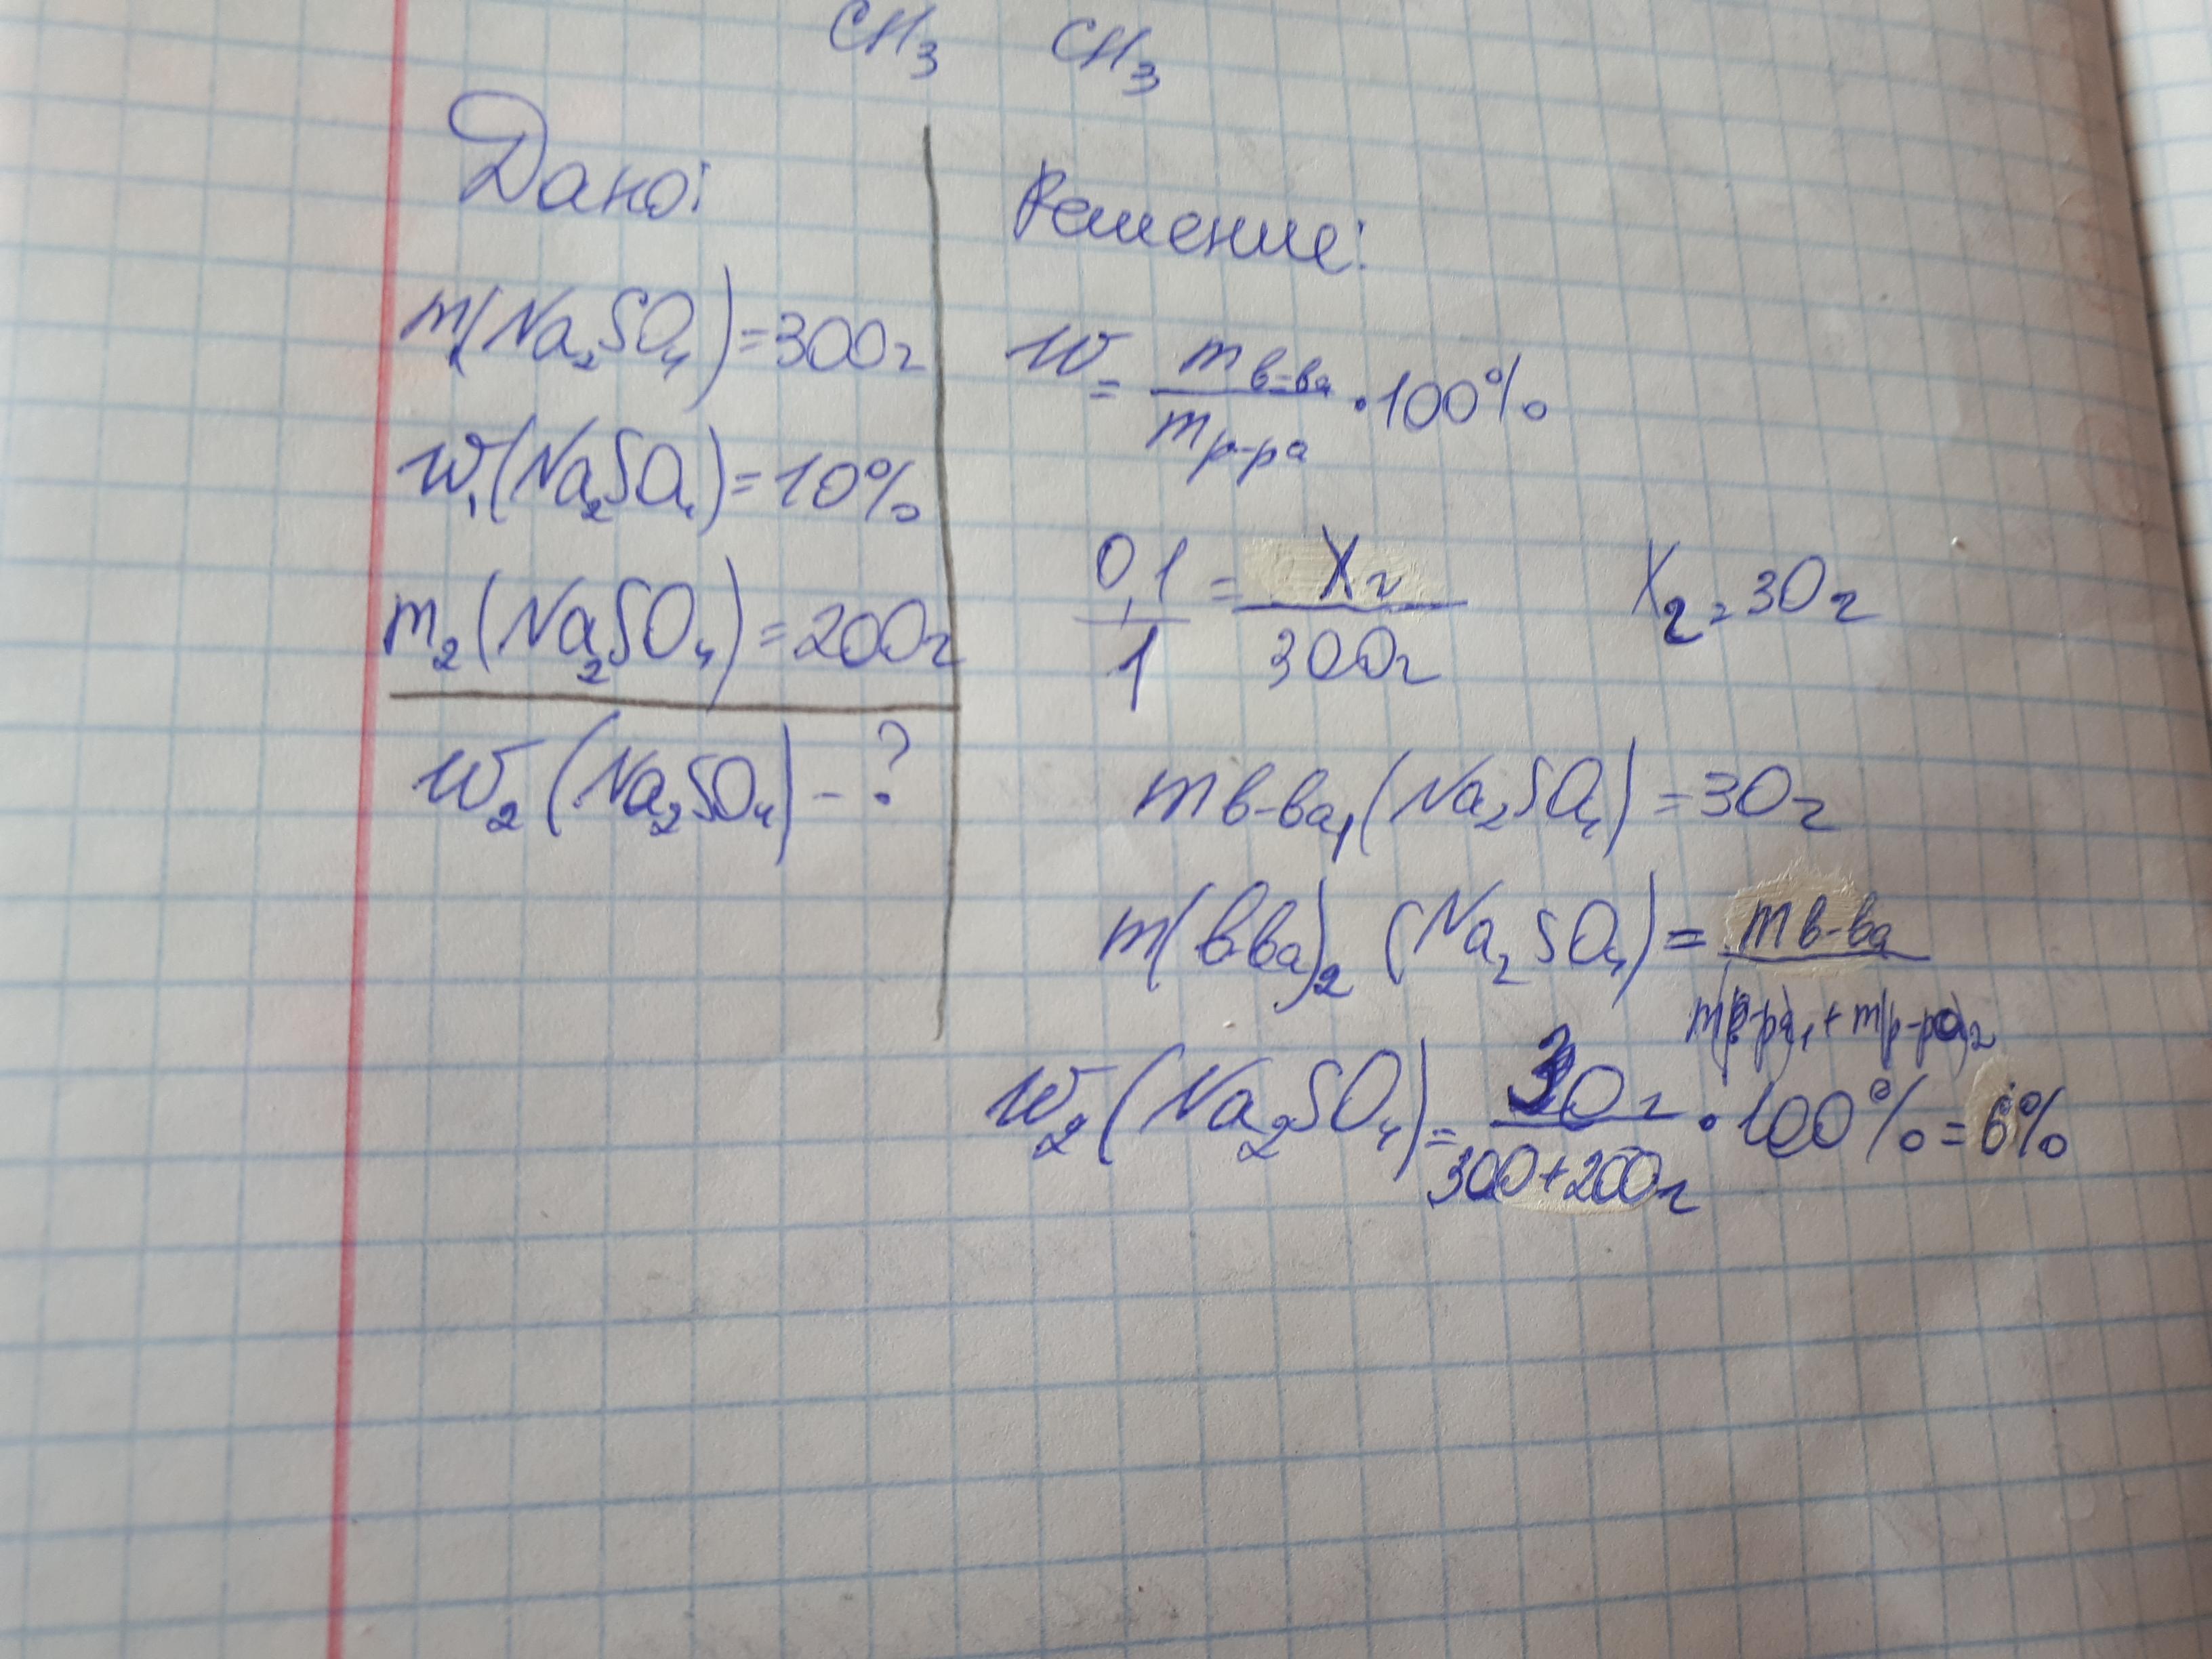 CH₃ CH₃
Дано:
m(Na₂SO₄)=300г
w₁(Na₂SO₄)=10%
m₂(Na₂SO₄)=200г
w₂(Na₂SO₄)-?
Решение:
w = mв-ва/mр-ра · 100%
0,1/1 = Xг/300г Xг=30г
mв-ва₁(Na₂SO₄)=30г
m(в-ва)₂(Na₂SO₄) = mв-ва/m(р-ра)₁+m(р-ра)₂
w₂(Na₂SO₄) = 30г/300+200г · 100% = 6%